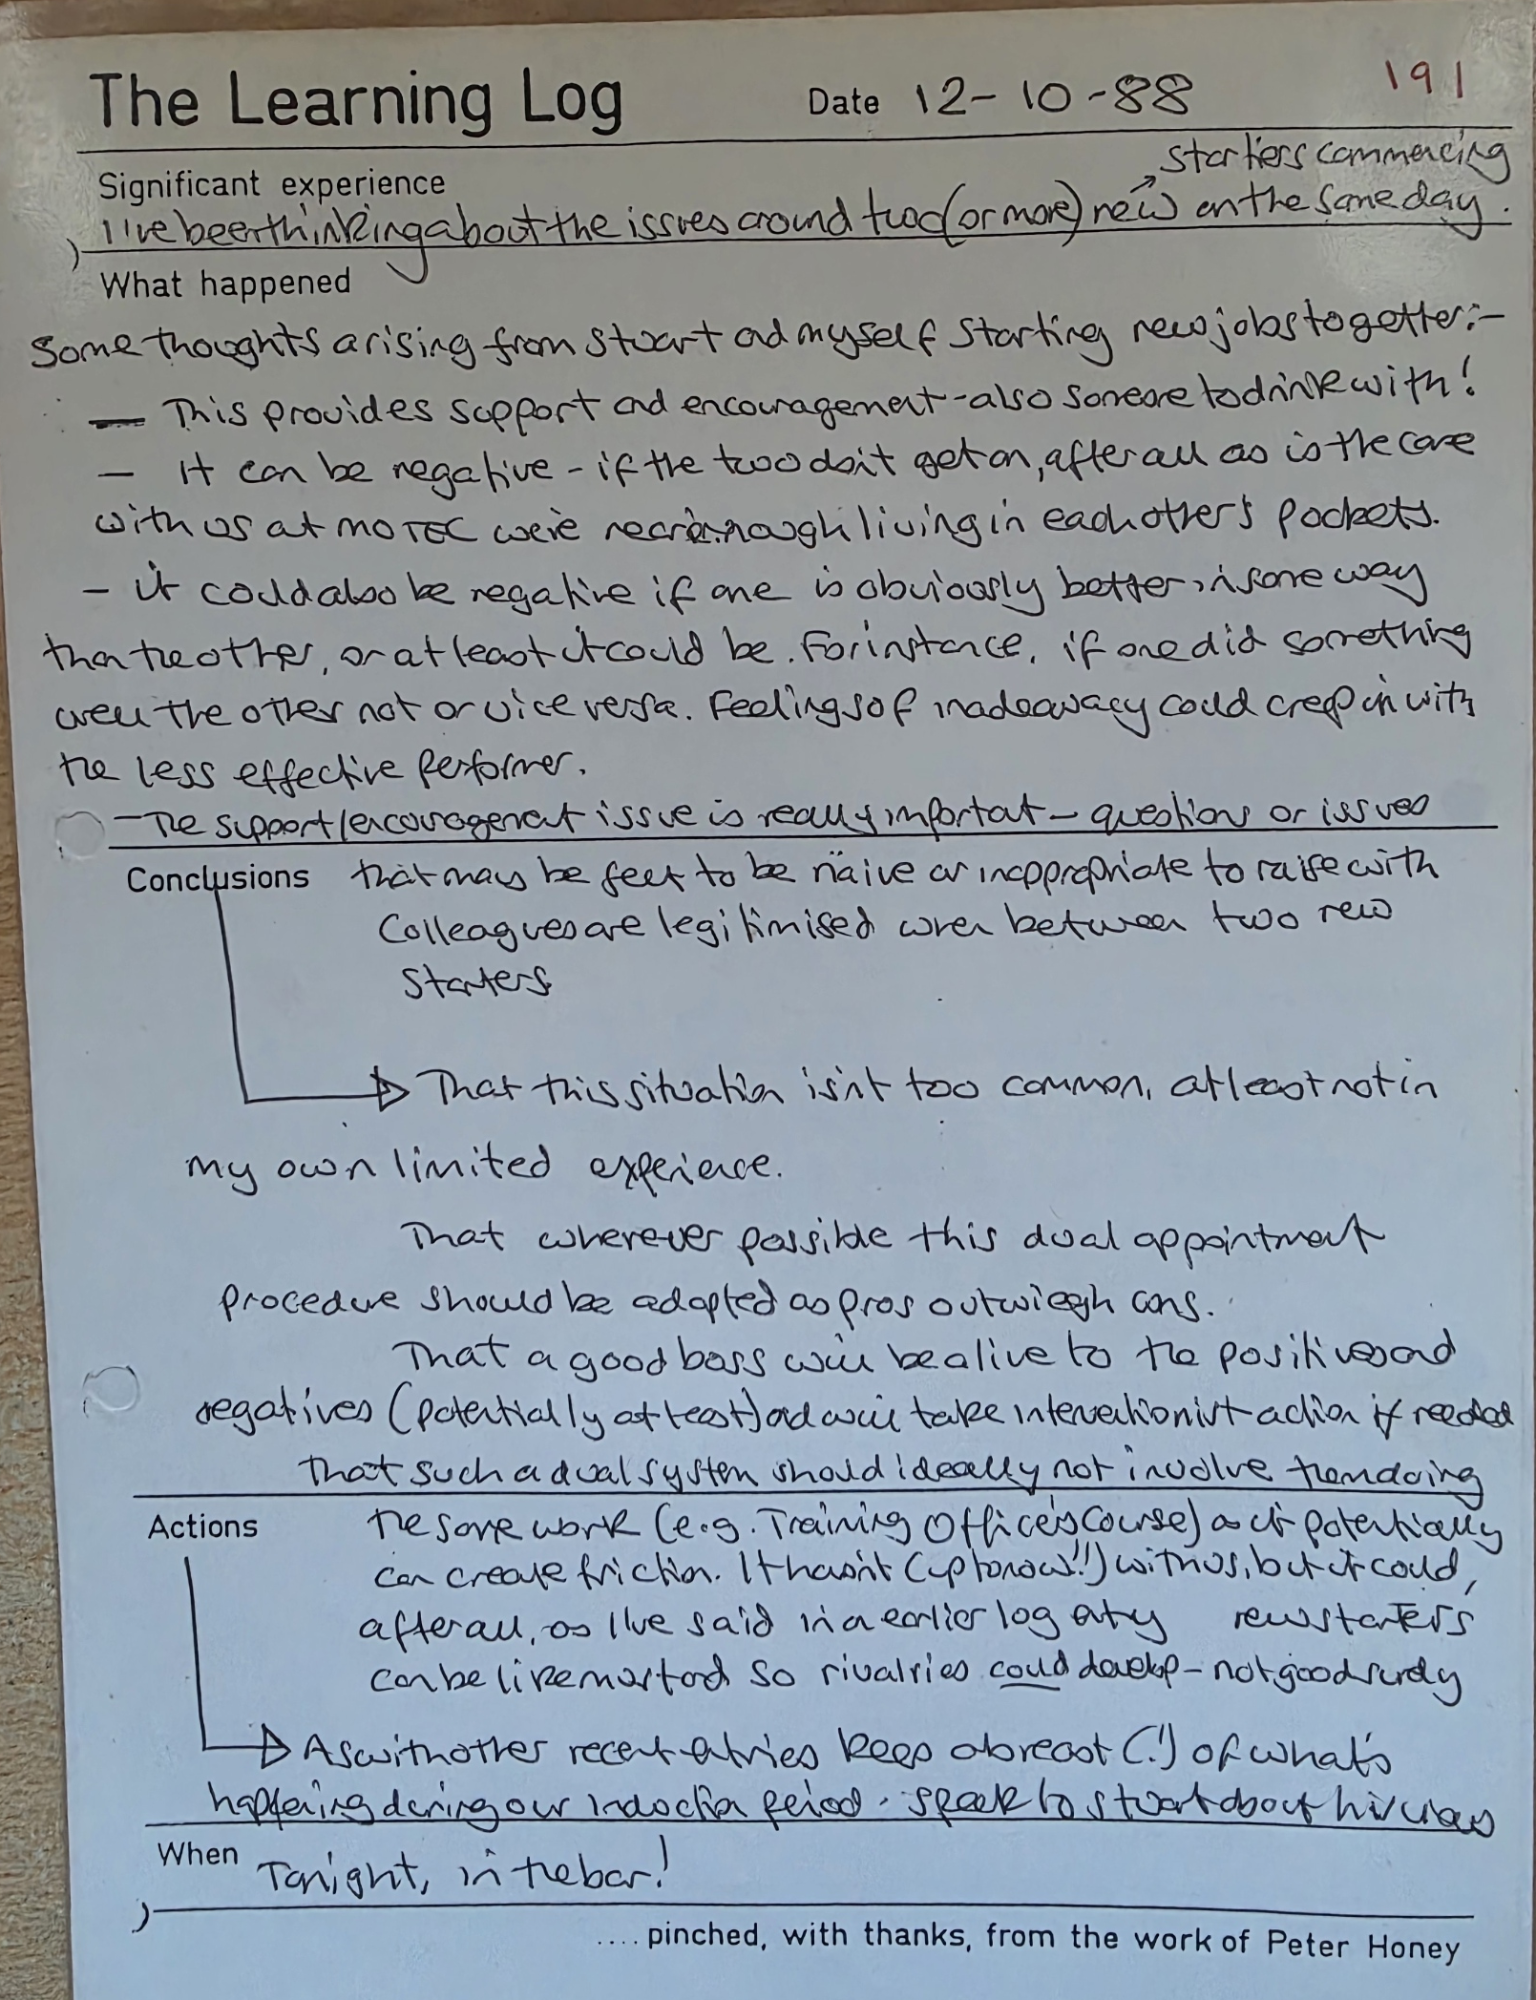 The Learning Log Date 12-10-88 191
Significant experience
I've been thinking about the issues around two (or more) new starters commencing on the same day.
What happened
Some thoughts arising from Stuart and myself starting new jobs together:-
— This provides support and encouragement - also someone to drink with!
— It can be negative - if the two don't get on, after all as is the case
with us at MOTEC we're near enough living in each other's pockets.
- it could also be negative if one is obviously better, in some way
than the other, or at least it could be. For instance, if one did something
well the other not or vice versa. Feelings of inadequacy could creep in with
the less effective performer.
- The support/encouragement issue is really important - questions or issues
Conclusions that may be felt to be naive or inappropriate to raise with
Colleagues are legitimised when between two new
starters
That this situation isn't too common, at least not in
my own limited experience.
That wherever possible this dual appointment
procedure should be adopted as pros outwiegh cons.
That a good boss will be alive to the positives and
negatives (potentially at least) and will take interventionist action if needed
that such a dual system should ideally not involve them doing
Actions the same work (e.g. Training Officers Course) as it potentially
can create friction. It hasn't (up to now!!) with us, but it could,
after all, as I've said in a earlier log entry new starters
can be like mustard so rivalries could develop - not good surely
As with other recent entries keep abreast (!) of what's
happening during our induction period. Speak to Stuart about his views
When Tonight, in the bar!
.... pinched, with thanks, from the work of Peter Honey